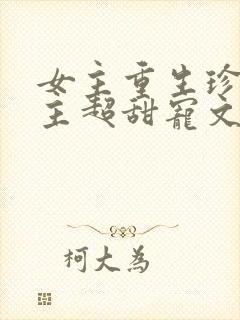 女主重生珍
主超甜宠文
柯大為